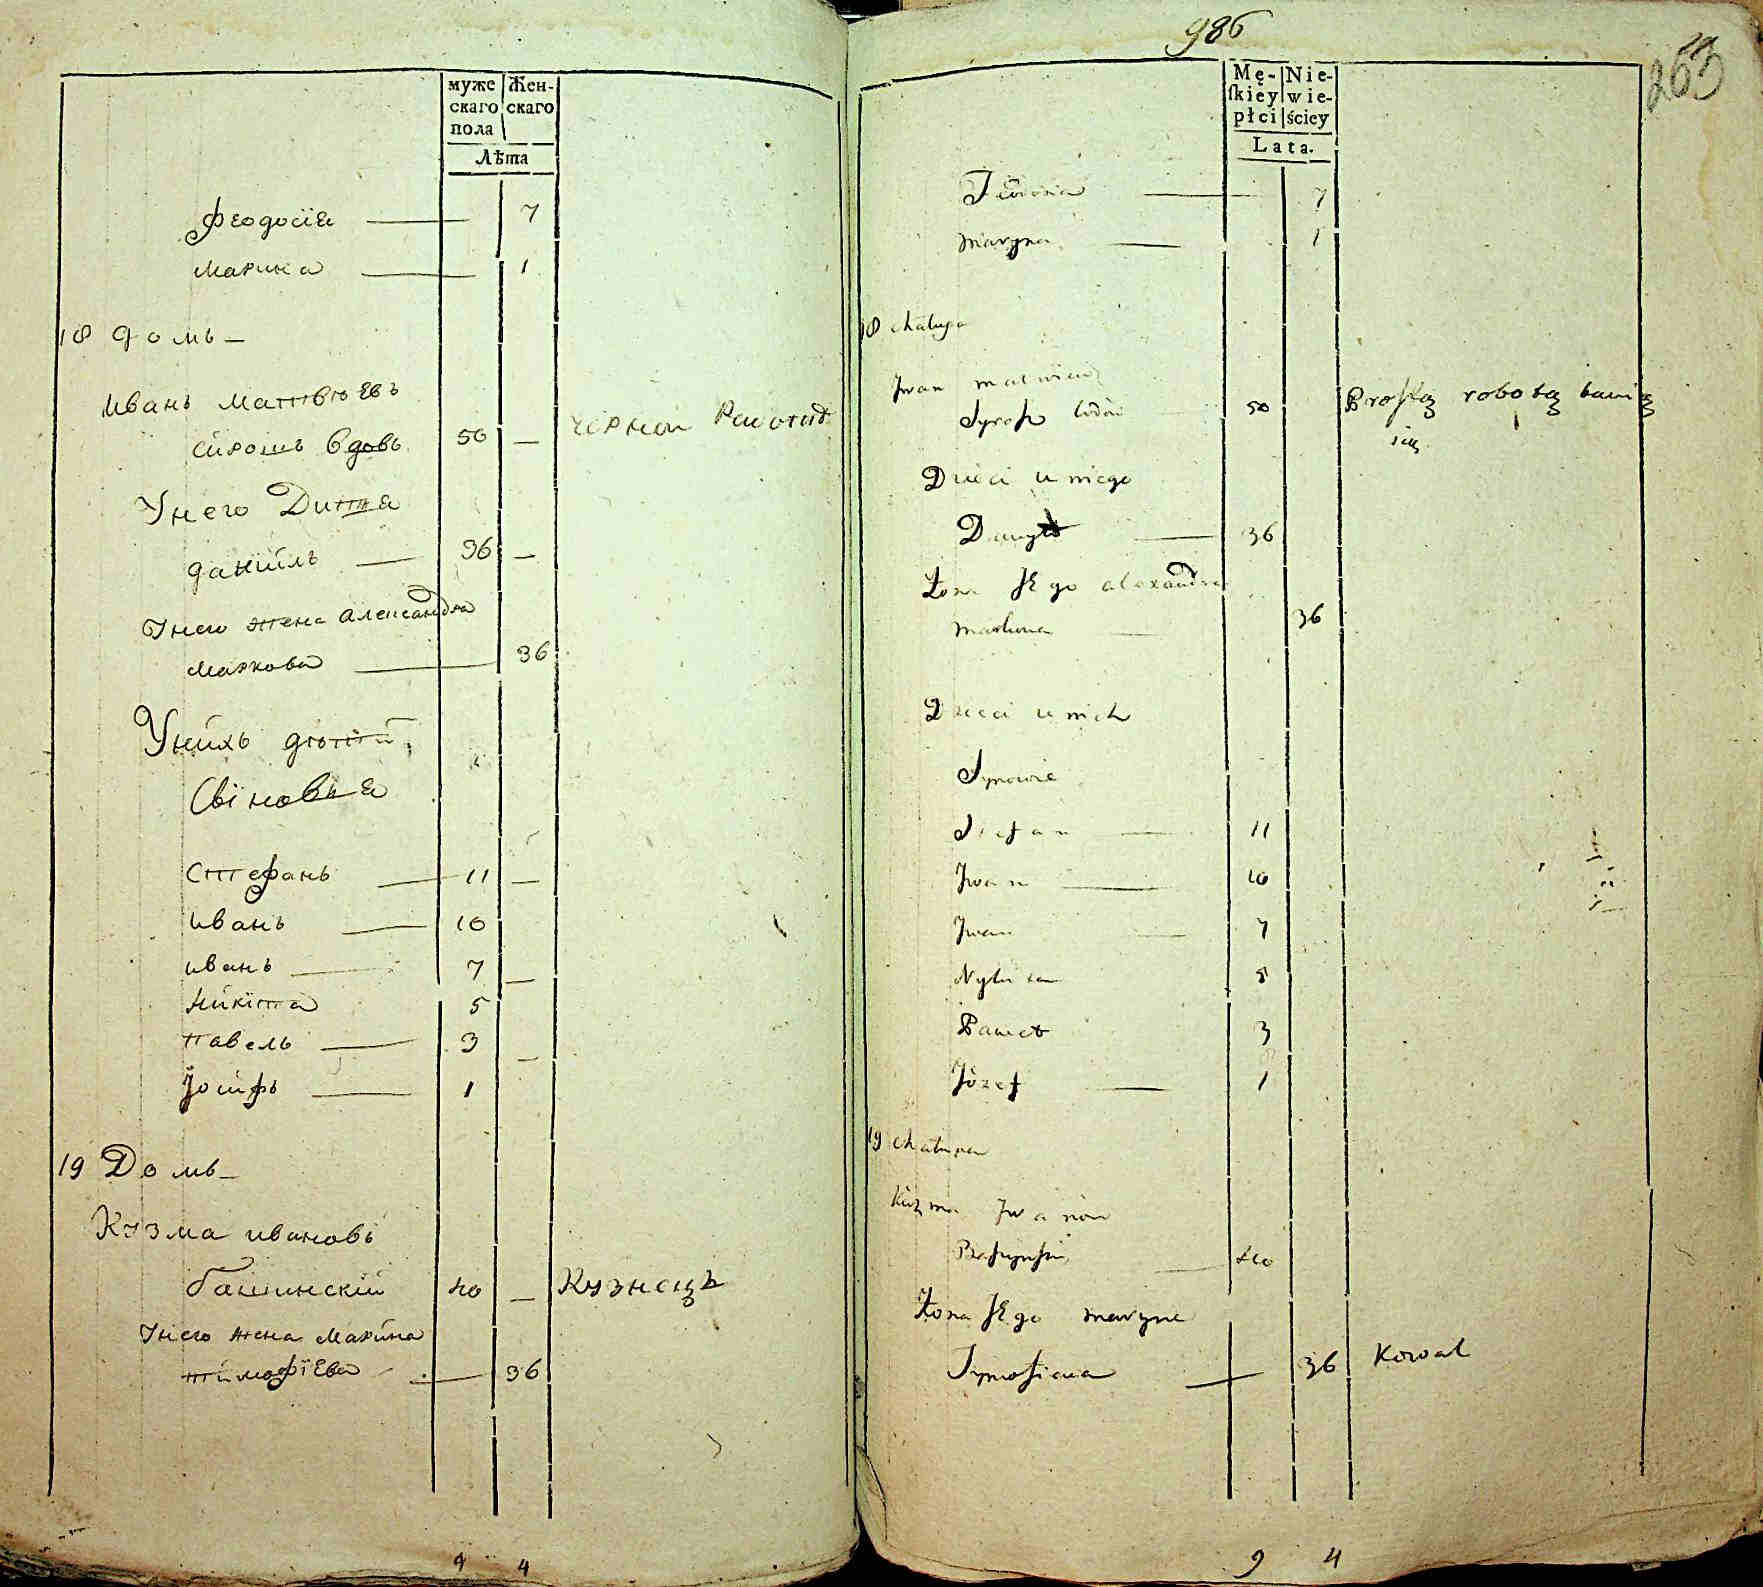 муже
скаго
пола
Жен-
скаго
Лѣта
Феодосия — 7
Марина — 1
18 домъ —
Иванъ Матвѣевъ
Сирошъ вдовъ 50 — черной работай
У него Дитя
Данійлъ — 36 —
У него жена Александра
Маркова — 36
У нихъ дѣтий
Свіновья
Стефанъ — 11 —
Иванъ — 10
Иванъ — 7 —
Никита 5
Павелъ — 3 —
Іосифъ — 1
19 Домъ —
Кузма Ивановъ
Башинскій 40 — Кузнецъ
У него жена Марина
Тимофіева — 36
9 4
986
263
Mę-
skiey
płci
Nie-
wie-
ściey
Lata.
Teodosia — 7
Maryna — 1
18 chałupa
Jwan Matwieiu
Syrosz wdow 50 Prostą robotą bawi
się
Dzieci u niego
Danyło — 36
Żona Jego Alexandra
Markowa — 36
Dzieci u nich
Synowie
Stefan — 11
Jwan — 10
Jwan — 7
Nykita 5
Paweł 3
Józef — 1
19 chałupa
Kuzma Jwanow
Baszynski — 40
Żona Jego Maryna
Tymofiewa — 36 Kowal
9 4